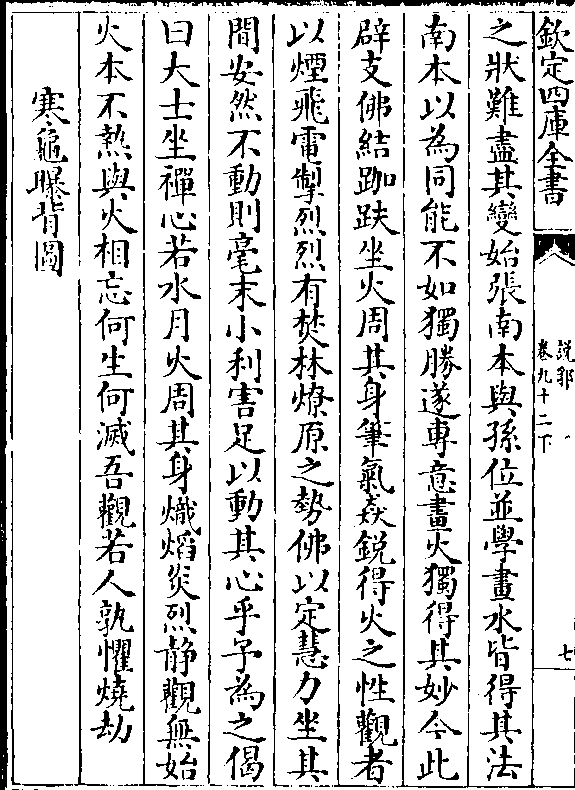 欽定四庫全書
說郛
卷九十二下
七
之狀難盡其變始張南本與孫位並學畫水皆得其法
南本以為同能不如獨勝遂專意畫火獨得其妙今此
辟支佛結跏趺坐火周其身筆氣焱銳得火之性觀者
以煙飛電掣烈烈有焚林燎原之勢佛以定慧力坐其
間安然不動則毫末小利害足以動其心乎予為之偈
曰大士坐禪心若水月火周其身熾焰炎烈静觀無始
火本不熱與火相忘何生何滅吾觀若人孰懼燒劫
寒龜曝背圖